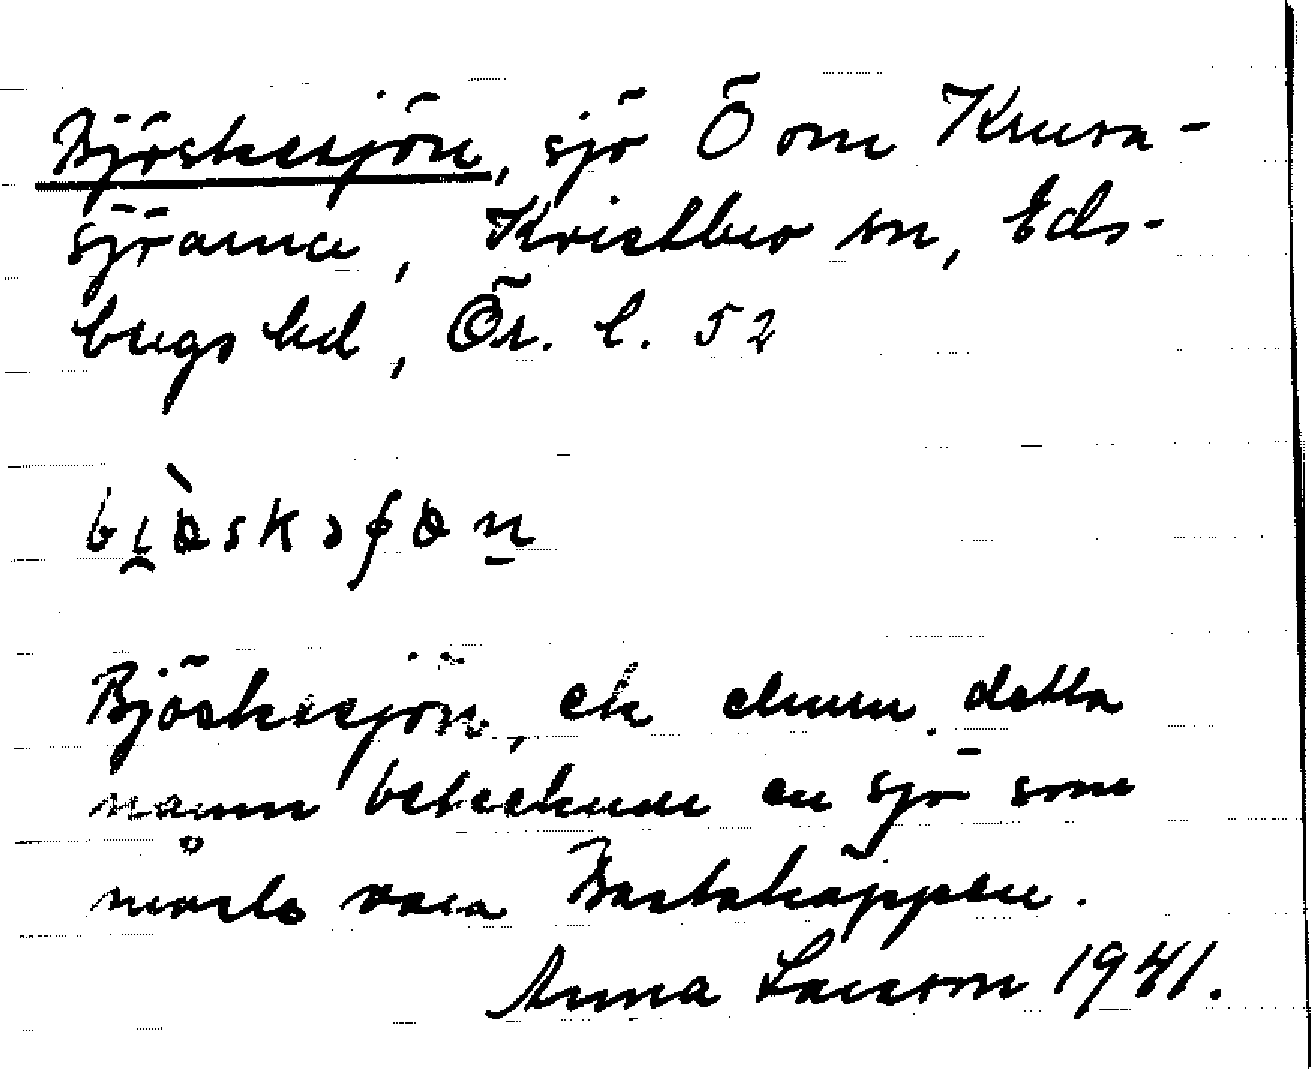 Björkesjön, sjö Ö om Krusa-
sjöarna, Kvistbro sn, Eds-
bergs hd, Ör. l. 52
Björkesjön, ek denna detta
namn betecknade en sjö som
måste vara Bastakäppen.
Anna Larsson 1941.